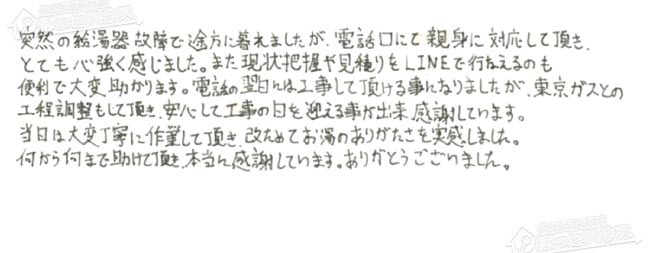 突然の給湯器故障で途方に暮れましたが、電話口にて親身に対応して頂き、
とても心強く感じました。また現状把握や見積りをLINEで行なえるのも
便利で大変助かります。電話の翌日には工事して頂ける事になりましたが、東京ガスとの
工程調整もして頂き、安心して工事の日を迎える事が出来、感謝しています。
当日は大変丁寧に作業して頂き、改ためてお湯のありがたさを実感しました。
何から何まで助けて頂き、本当に感謝しています。ありがとうございました。